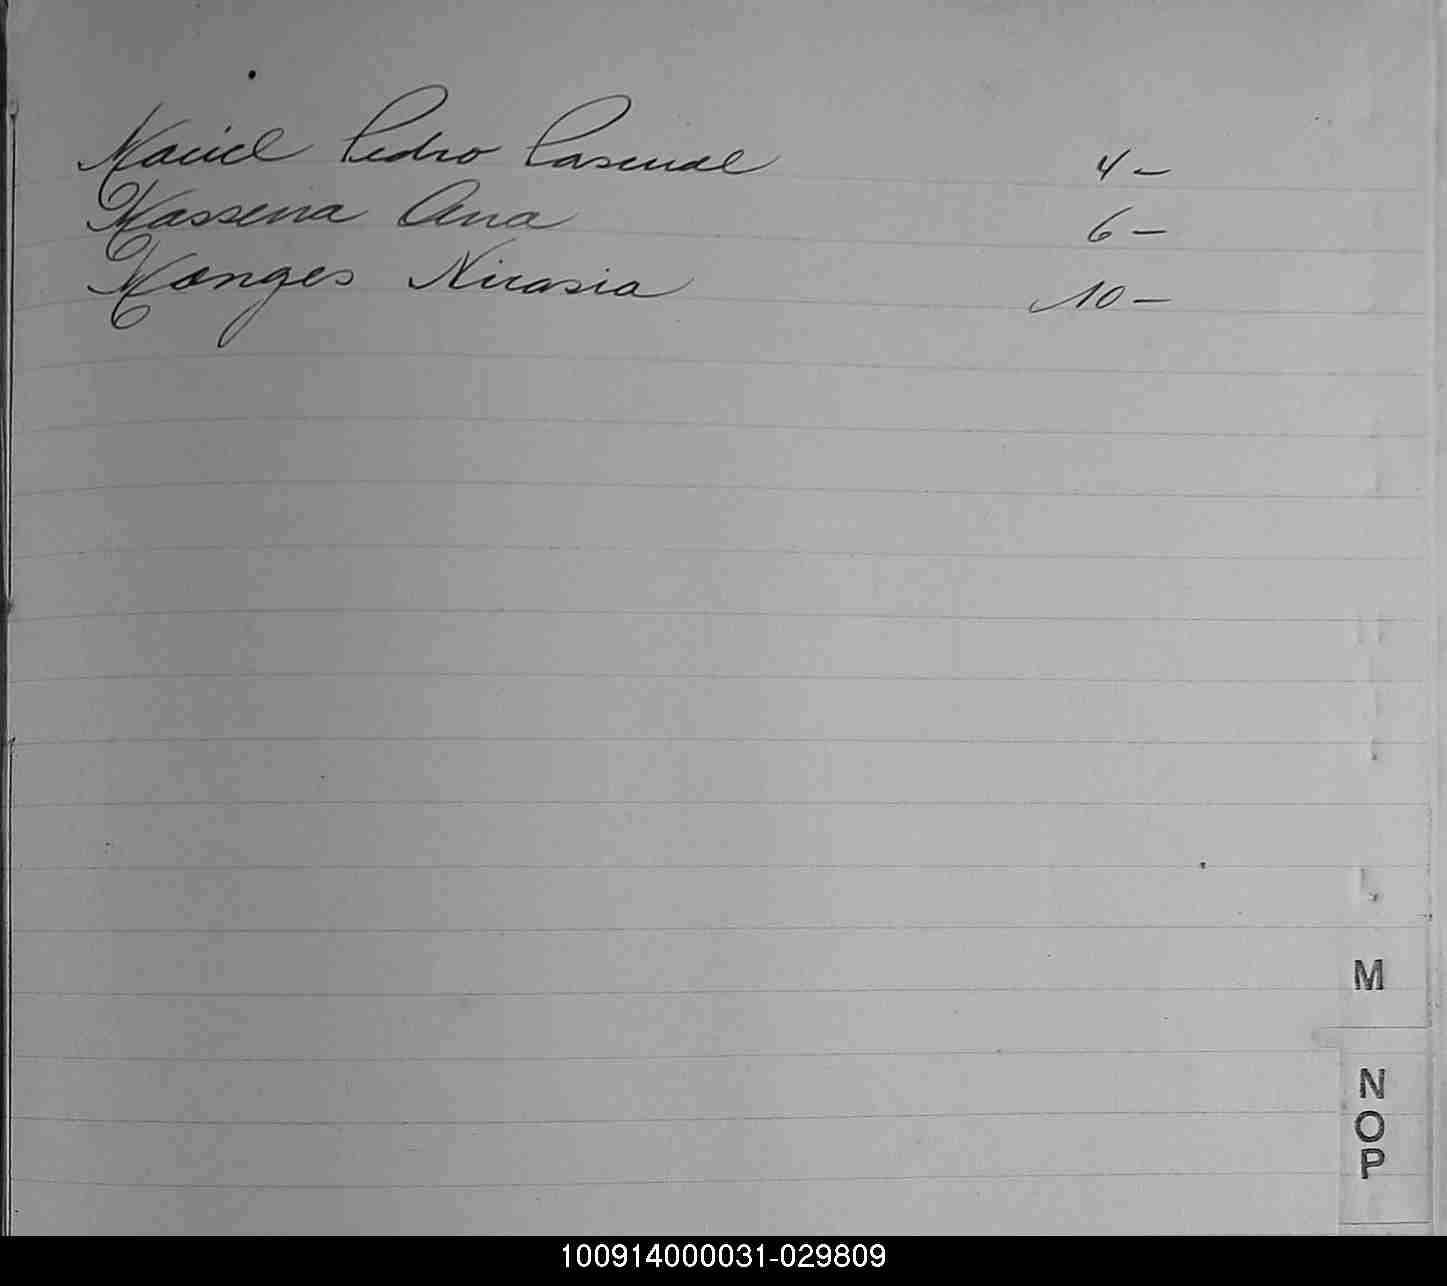 Maciel Pedro Pascual 4 -
Massena Ana 6 -
Monges Nicasia 10 -
M
N
O
P
100914000031-029809